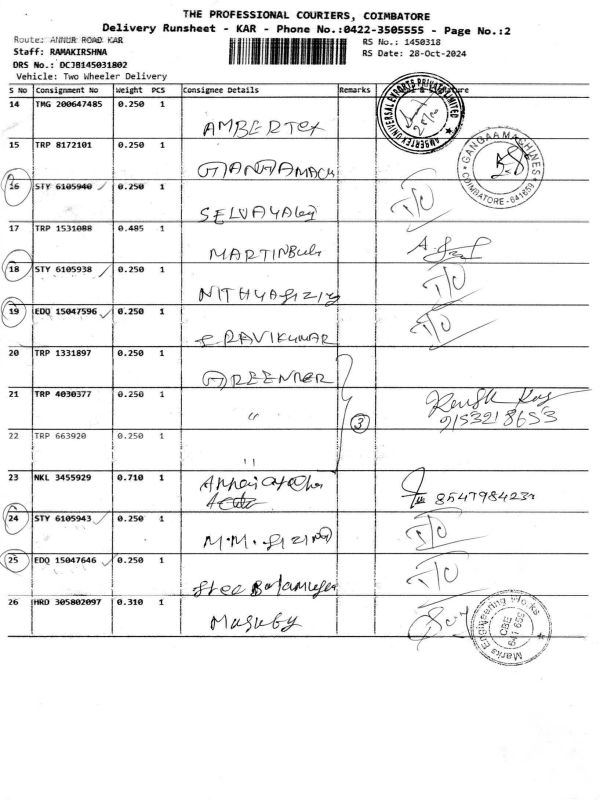 THE PROFESSIONAL COURIERS, COIMBATORE
Delivery Runsheet - KAR - Phone No.:0422-3505555 - Page No.:2
Route: ANNUR ROAD KAR
RS No.: 1450318
Staff: RAMAKIRSHNA
RS Date: 28-Oct-2024
DRS No.: DCJB145031802
Vehicle: Two Wheeler Delivery
S No Consignment No Weight PCS Consignee Details Remarks
14 TMG 200647485 0.250 1 AMBERTEX
ANGERTEX UNIVERSAL EXPORTS PRIVATE LIMITED
15 TRP 8172101 0.250 1 GANGAMACH
GANGAA MACHINES
COIMBATORE - 641659
16 STY 6105940 0.250 1 SELVA I/O
17 TRP 1531088 0.485 1 MARTIN A.
18 STY 6105938 0.250 1 NITHYA I/O
19 EDQ 15047596 0.250 1 RAVIKUMAR I/O
20 TRP 1331897 0.250 1 GREENTER
21 TRP 4030377 0.250 1 " 3
22 TRP 663920 0.250 1 "
23 NKL 3455929 0.710 1
24 STY 6105943 0.250 1 M.M. I/O
25 EDQ 15047646 0.250 1 Shee I/O
26 HRD 305802097 0.310 1
Marks Engineering Works
CBE
641 659